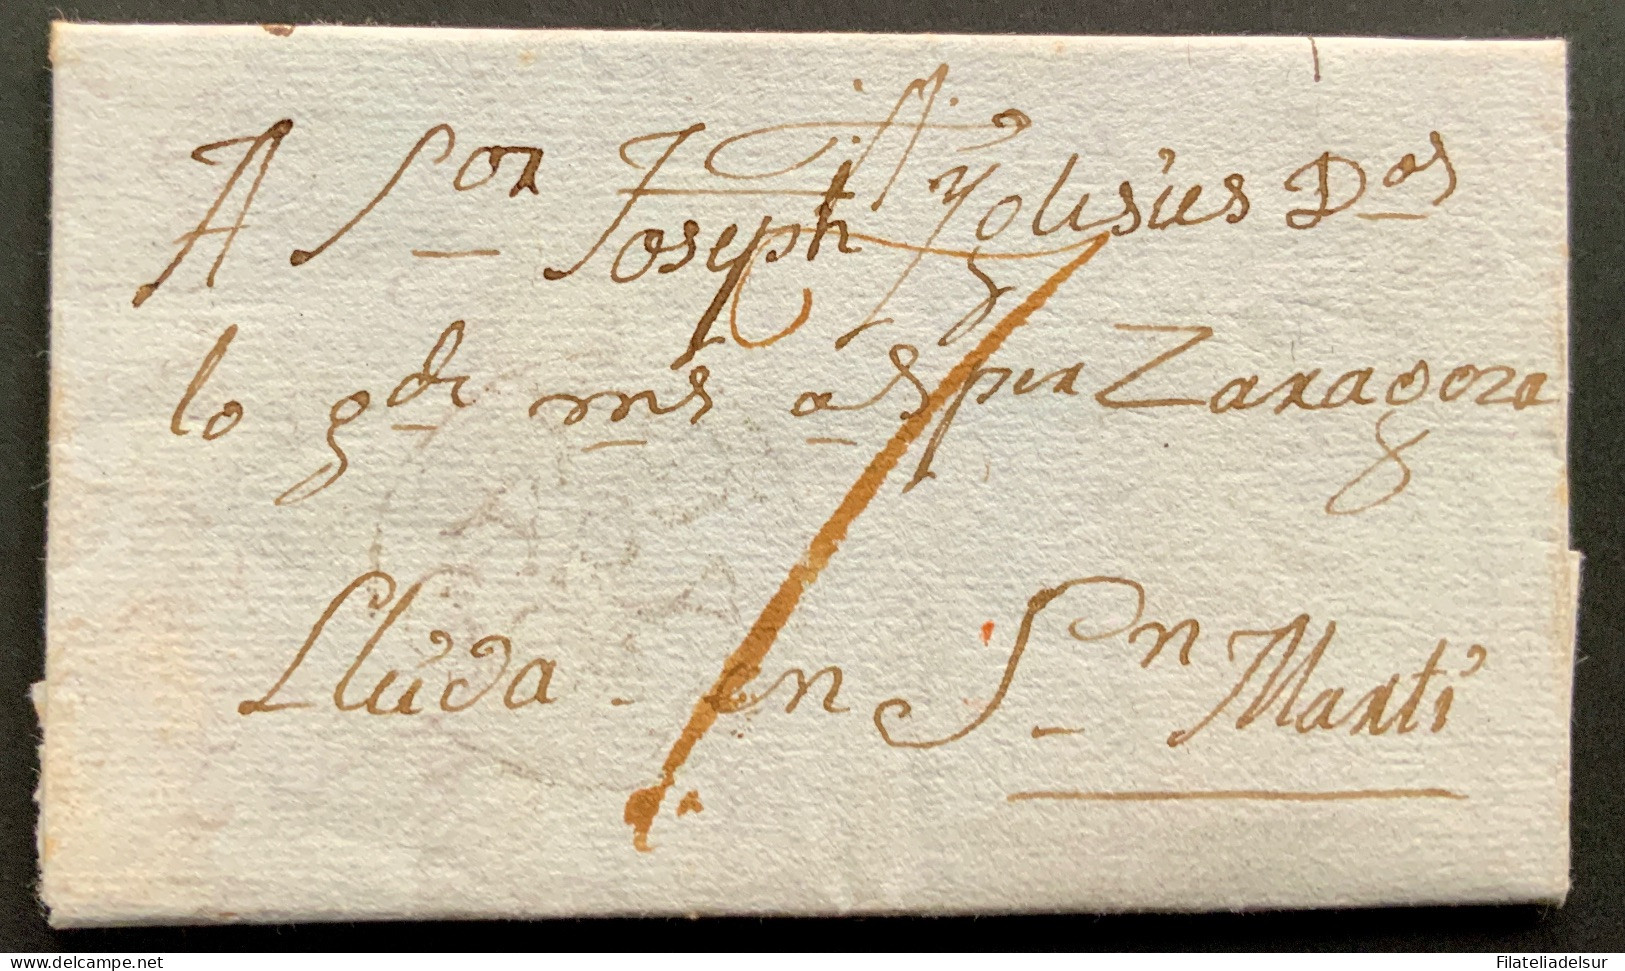 A S.or Joseph Yglisies D.os
lo g.de m.s a.s per Zaragoza
Lluda - en S.n Marti
delcampe.net
Filateliadelsur